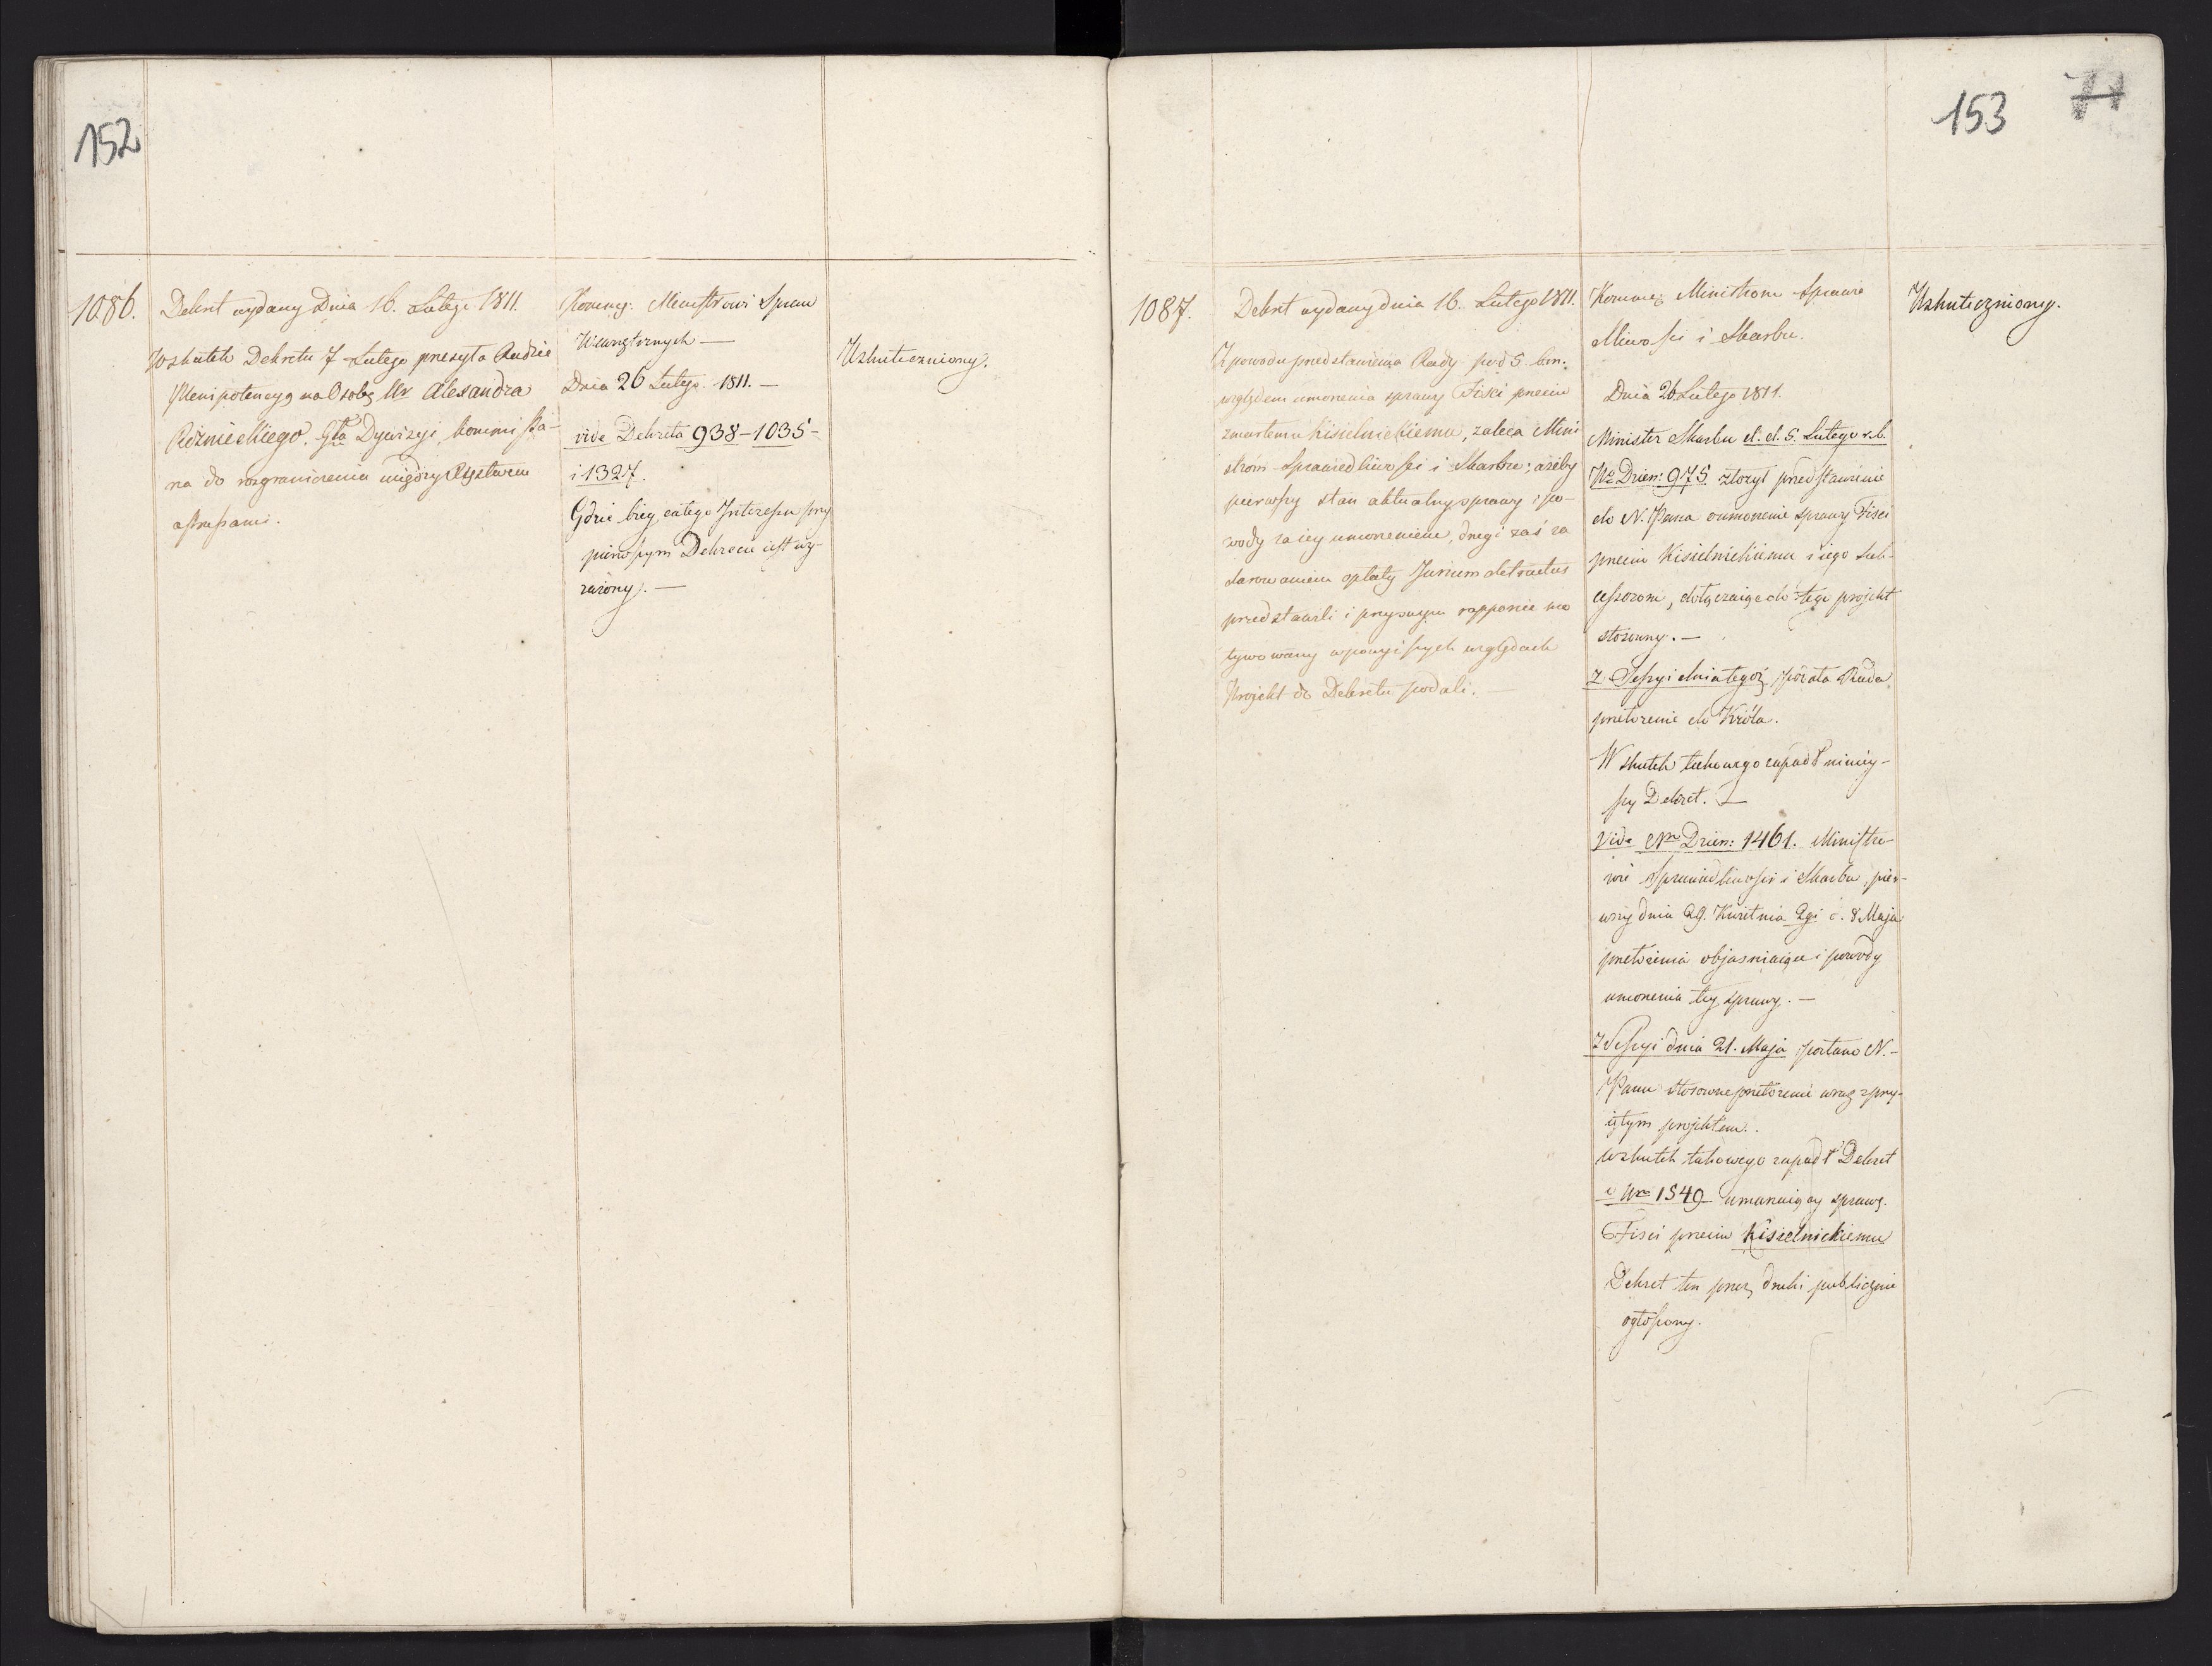 152
1086.
Dekret wydany Dnia 16. Lutego 1811.
Wskutek Dekretu 7 Lutego przesyła Radzie
Plenipotencyą na Osobę Ur Alexandra
Rożnieckiego. Gła Dywizyi, kommissa-
na do rozgraniczenia między Xięstwem
a Prussami.
Kommu: Ministrowi Spraw
Wewnętrznych —
Dnia 26 Lutego. 1811. —
vide Dekreta 938 - 1035 -
i 1327.
Gdzie bieg całego Interessu przy
pierwszym Dekrecie iest wy-
rażony. —
Uskuteczniony.
153 71
1087.
Dekret wydany dnia 16. Lutego 1811.
Z powodu przedstawienia Rady pod 5. 
względem umorzenia sprawy Fisci przeciw
zmarłemu Kisielnickiemu, zaleca Mini
strom Sprawiedliwości i Skarbu; ażeby
pierwszy stan aktualny sprawy i po-
wody za iey umorzeniem, drugi zaś za
darowaniem opłaty Jurium detractus
przedstawili i przy swym rapporcie mo
tywowany w powyższych względach
Projekt do Dekretu podali. —
Kommu: Ministrom Sprawie
dliwości i Skarbu.
Dnia 26 Lutego 1811.
Minister Skarbu d. d. 5. Lutego r. b.
Nº Dzien: 975 złożył przedstawienie
do N. Pana o umorzenie sprawy Fisci
przeciw Kisielnickiemu i iego Suk-
cessorom, dołączaiąc do tego projekt
stosowny. —
Z Sessyi dnia tegoż posłała Rada
przełożenie do Króla.
W skutek takowego zapadł niniey-
szy Dekret. —
Vide Nm Dzien: 1461. Ministro-
wie Sprawiedliwości i Skarbu, pier-
wszy dnia 29. Kwietnia 2gi d. 8 Maja
przełożenia objaśniaiące i powody
umorzenia tey sprawy. —
Z Sessyi dnia 21. Maja posłano N. -
Panu stosowne przełożenie wraz z przy-
iętym projektem.
Wskutek takowego zapadł Dekret
o Nro 1549 umarzaiący sprawę
Fisci przeciw Kisielnickiemu
Dekret ten przez druki publicznie
ogłoszony.
Uskuteczniony.